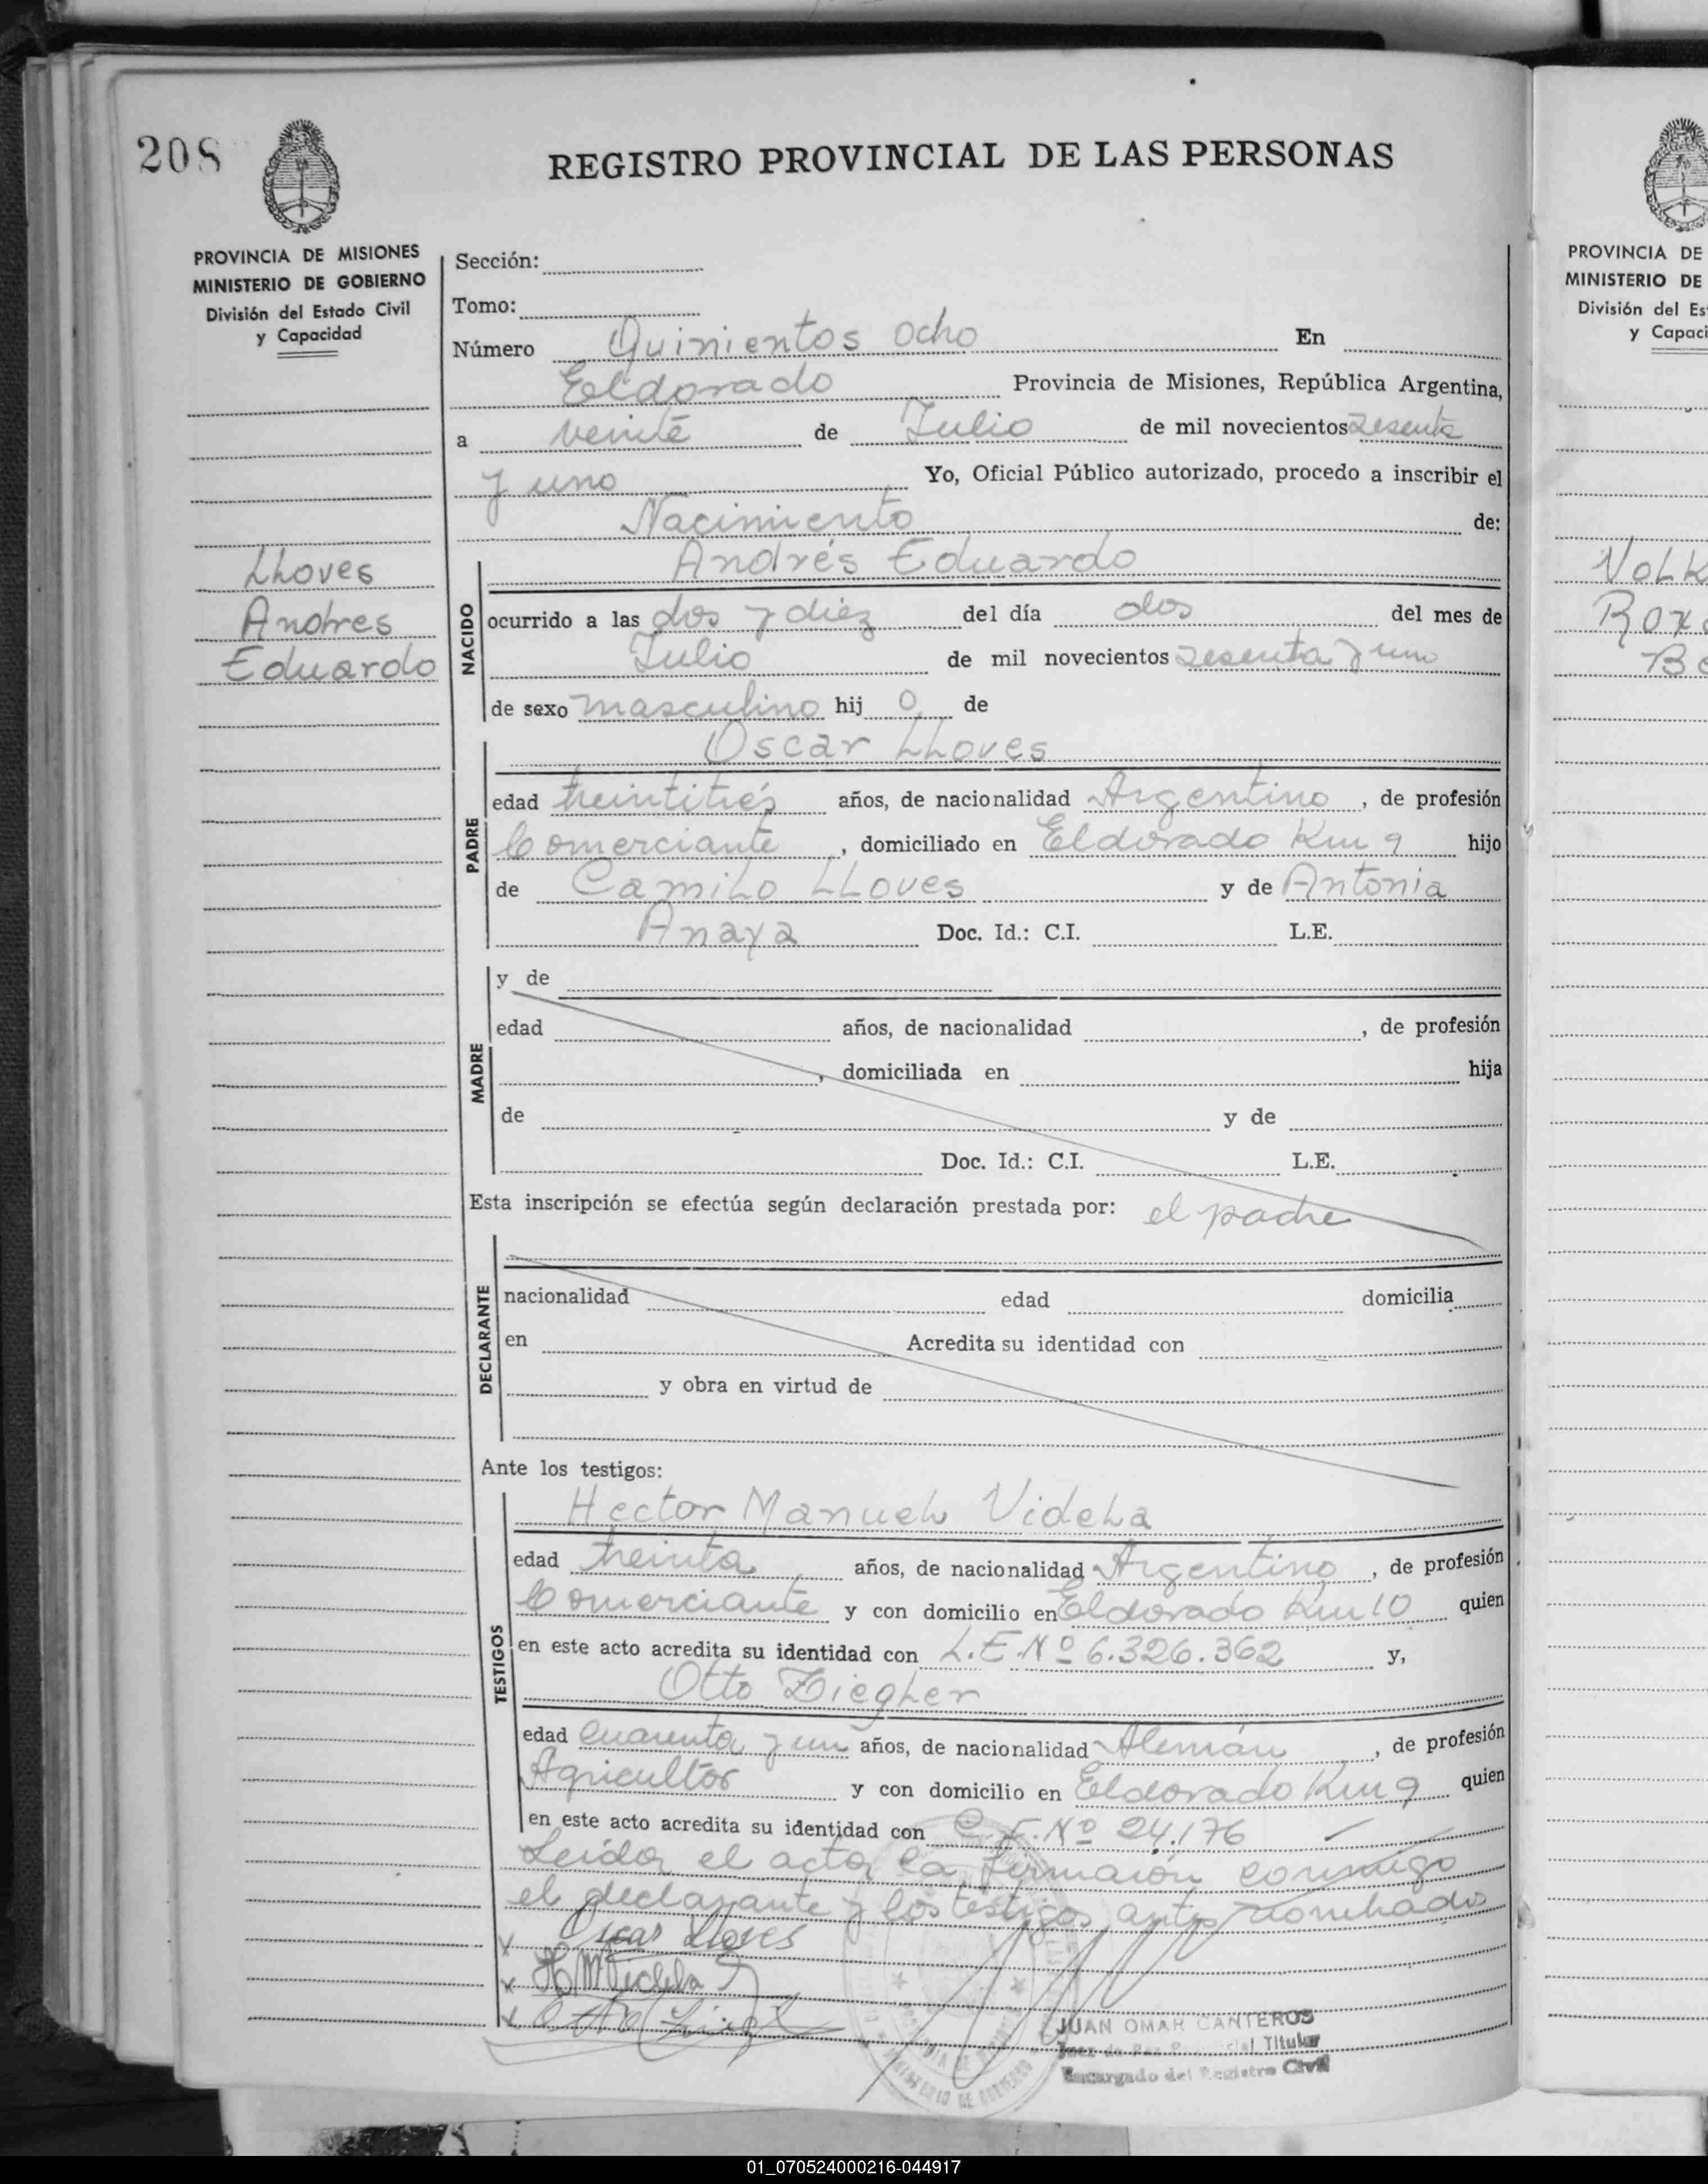 208
REGISTRO PROVINCIAL DE LAS PERSONAS
PROVINCIA DE MISIONES
MINISTERIO DE GOBIERNO
División del Estado Civil
y Capacidad
Lloves
Andres
Eduardo
Sección:
Tomo:
Número Quinientos ocho En
Eldorado Provincia de Misiones, República Argentina,
a veinte de Julio de mil novecientos sesenta
y uno Yo, Oficial Público autorizado, procedo a inscribir el
Nacimiento de:
NACIDO
Andrés Eduardo
ocurrido a las dos y diez del día dos del mes de
Julio de mil novecientos sesenta y uno
de sexo masculino hij o de
PADRE
Oscar Lloves
edad treintitrés años, de nacionalidad Argentino, de profesión
Comerciante, domiciliado en Eldorado Km 9 hijo
de Camilo Lloves y de Antonia
Anaya Doc. Id.: C.I. L.E.
MADRE
y de
edad años, de nacionalidad , de profesión
, domiciliada en hija
de y de
Doc. Id.: C.I. L.E.
Esta inscripción se efectúa según declaración prestada por: el padre
DECLARANTE
nacionalidad edad domicilia
en Acredita su identidad con
y obra en virtud de
Ante los testigos:
TESTIGOS
Hector Manuel Videla
edad treinta años, de nacionalidad Argentino, de profesión
Comerciante y con domicilio en Eldorado Km 10 quien
en este acto acredita su identidad con L.E Nº 6.326.362 y,
Otto Ziegler
edad cuarenta y un años, de nacionalidad Alemán, de profesión
Agricultor y con domicilio en Eldorado Km 9 quien
en este acto acredita su identidad con Nº 24.176
Leída el acta la conmigo
el declarante y los testigos antes
x Oscar Lloves
x H M Videla
x Otto
JUAN OMAR CANTEROS
Juez de Paz Titular
Encargado del Registro Civil
PROVINCIA DE
MINISTERIO DE
División del Es
y Capaci
01_070524000216-044917